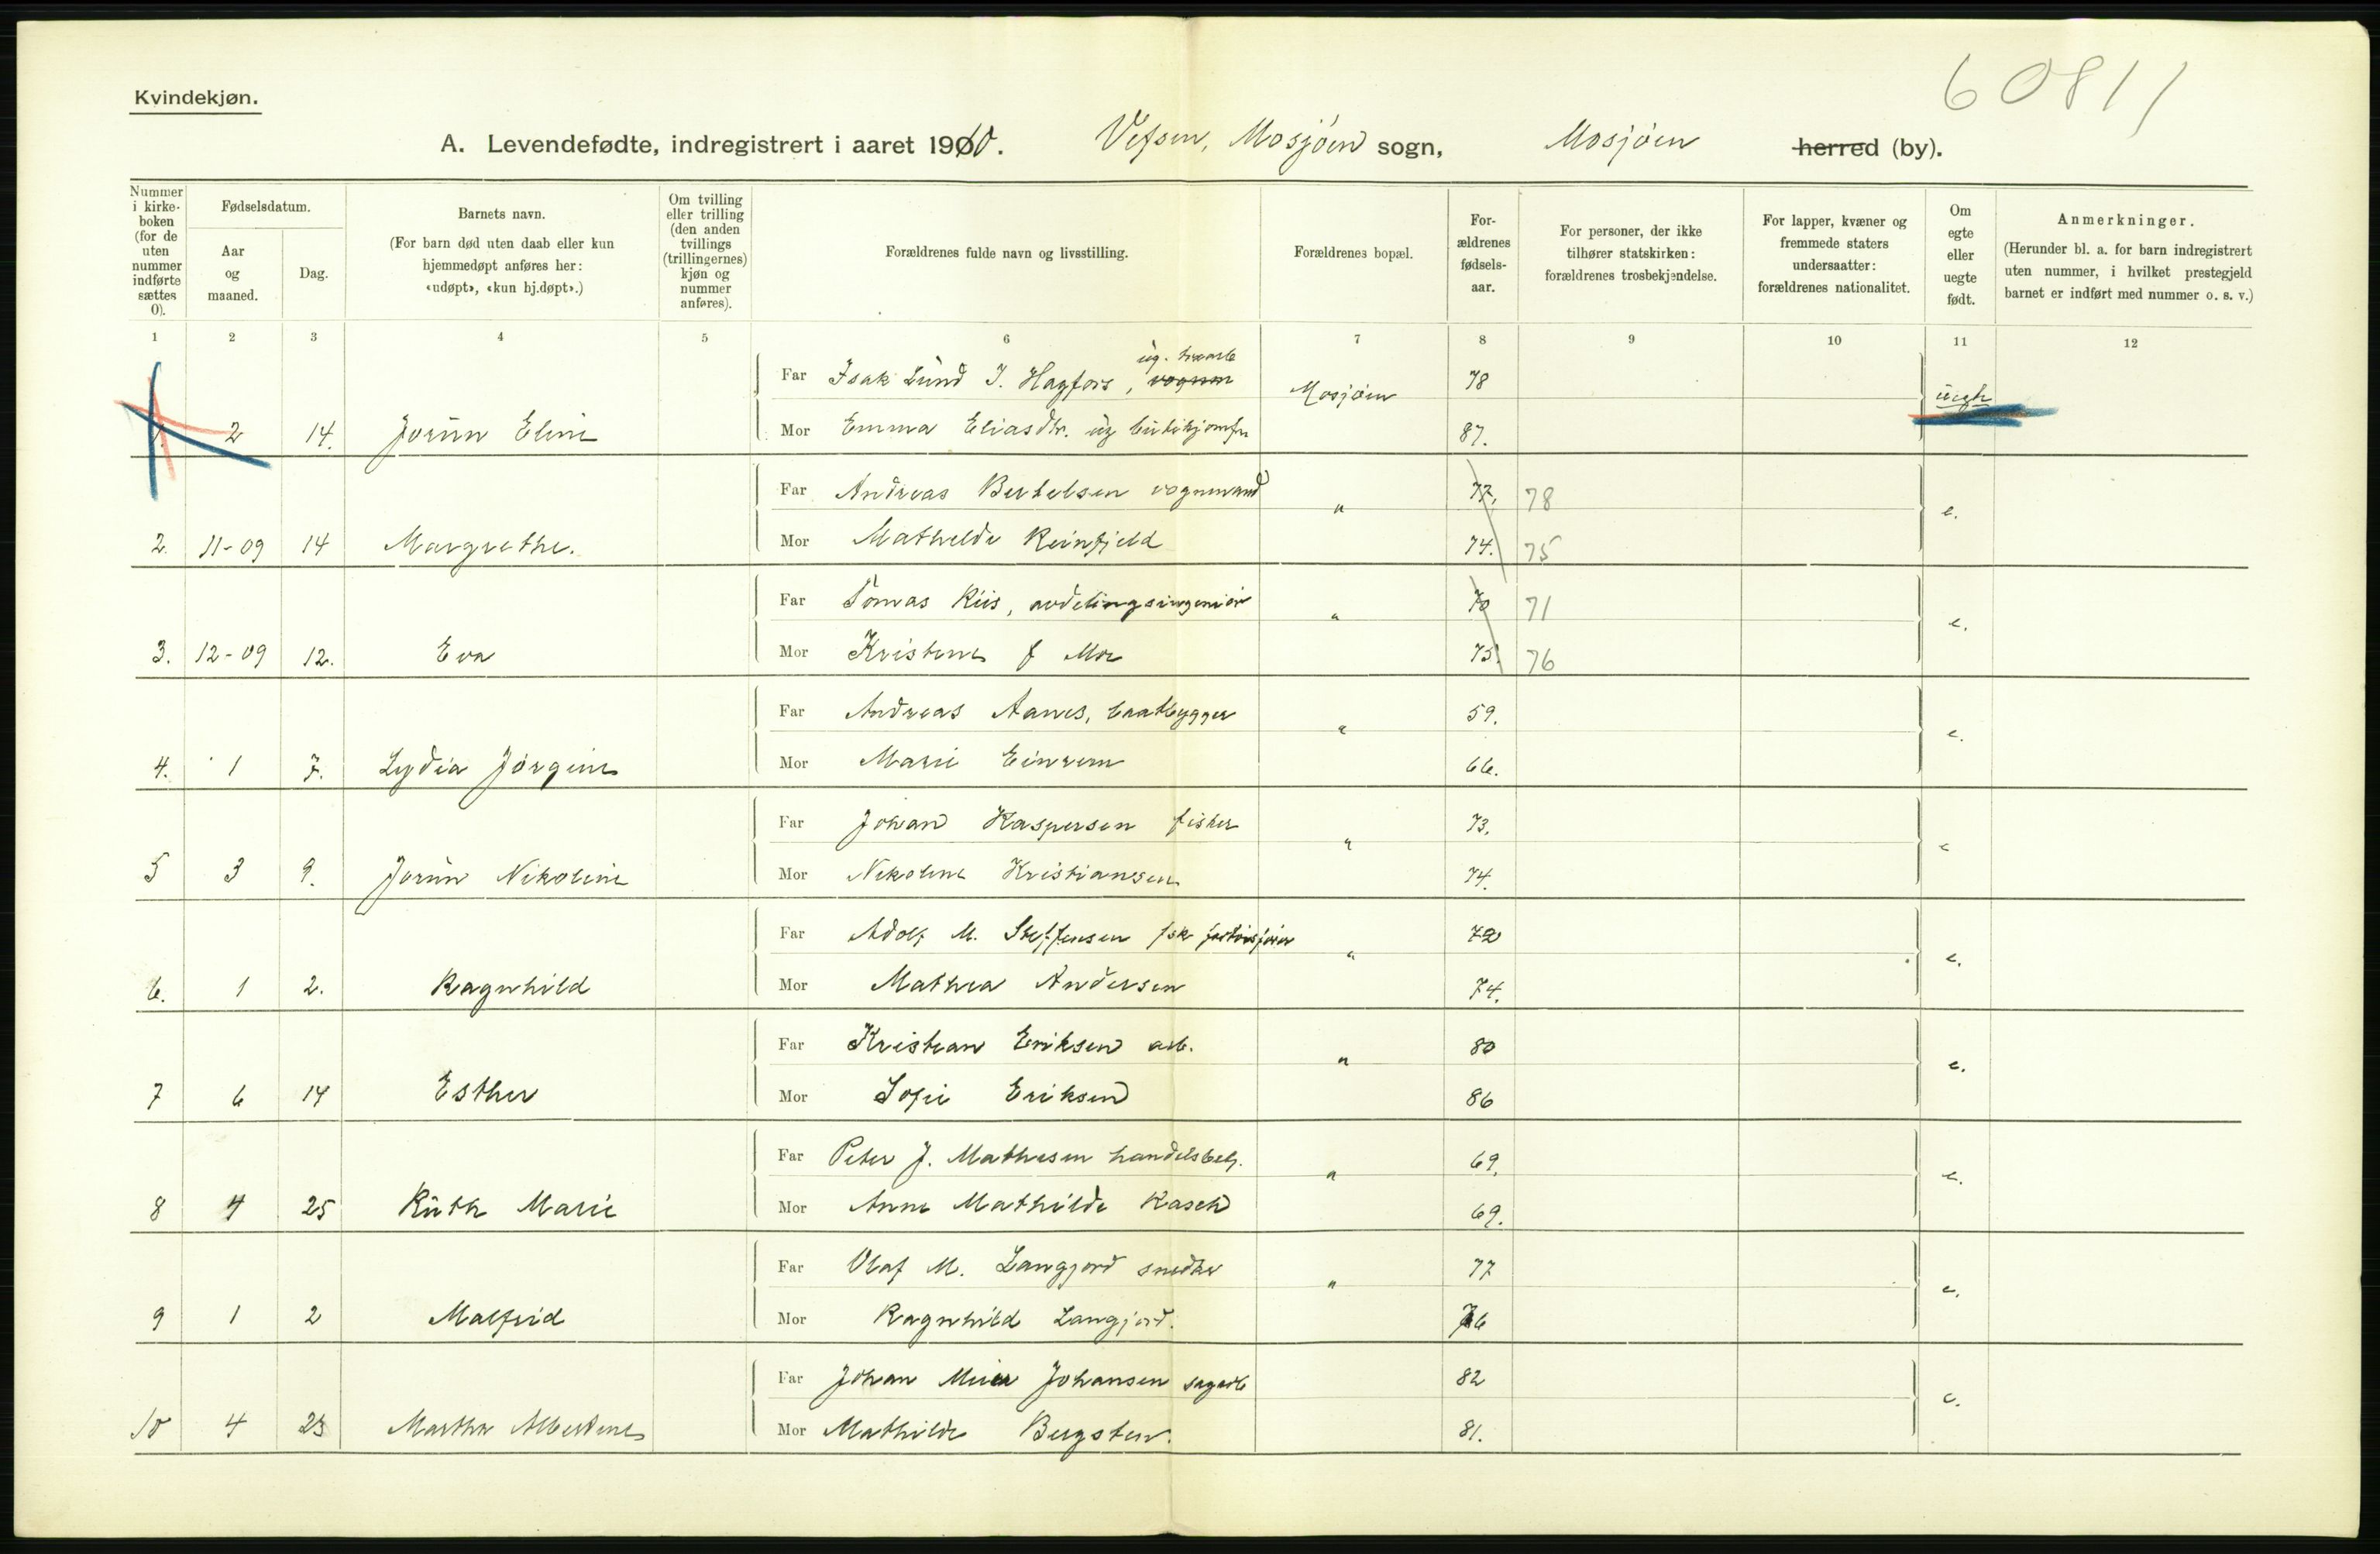 60811
Kvindekjøn.
A. Levendefødte, indregistrert i aaret 1910. Vefsen, Mosjøen sogn, Mosjøen herred (by).
Nummer i kirkeboken (for de uten nummer indførte sættes 0).
Fødselsdatum.
Aar og maaned.
Dag.
Barnets navn.
(For barn død uten daab eller kun hjemmedøpt anføres her: «udøpt», «kun hj.døpt».)
Om tvilling eller trilling (den anden tvillings (trillingernes) kjøn og nummer anføres).
Forældrenes fulde navn og livsstilling.
Forældrenes bopæl.
Forældrenes fødselsaar.
For personer, der ikke tilhører statskirken: forældrenes trosbekjendelse.
For lapper, kvæner og fremmede staters undersaatter: forældrenes nationalitet.
Om egte eller uegte født.
Anmerkninger.
(Herunder bl. a. for barn indregistrert uten nummer, i hvilket prestegjeld barnet er indført med nummer o. s. v.)
1 2 3 4 5 6 7 8 9 10 11 12
Far Isak Lund J. Hagfors, ug. Mosjøen 78 uegte
1. 2 14. Jorun Eline Mor Emma Eliasdtr. ug butikjomfru 87.
Far Andreas Bertelsen vognmand " 77. 78 e.
2. 11-09 14 Margrethe. Mor Mathilde Reinfjeld 74. 75
Far Tomas Riis, avdelingsingeniør " 70 71 e.
3. 12-09 12. Eva Mor Kristine f Moe 75. 76
Far Andreas Aanes, baatbygger " 59. e.
4. 1 7. Lydia Jørgine Mor Marie Einrem 66.
Far Johan Kaspersen fisker " 73. e
5 3 9. Jorun Nikoline Mor Nikoline Kristiansen 74.
Far Adolf M. Steffensen " 72 e.
6. 1 2. Ragnhild Mor Mathea Andersen 74.
Far Kristian Eriksen arb. " 80 e.
7 6 14 Esther Mor Sofie Eriksen 86
Far Peter J. Mathesen handelsbetj. " 69. e.
8 4 25 Ruth Marie Mor Anne Mathilde Rasch 69.
Far Olaf M. Langjord snedker " 77 e.
9 1 2 Malfrid Mor Ragnhild Langjord. 76
Far Johan Meier Johansen sagarb 82 e.
10 4 23 Martha Albertine Mor Mathilde Bergsten. 81.